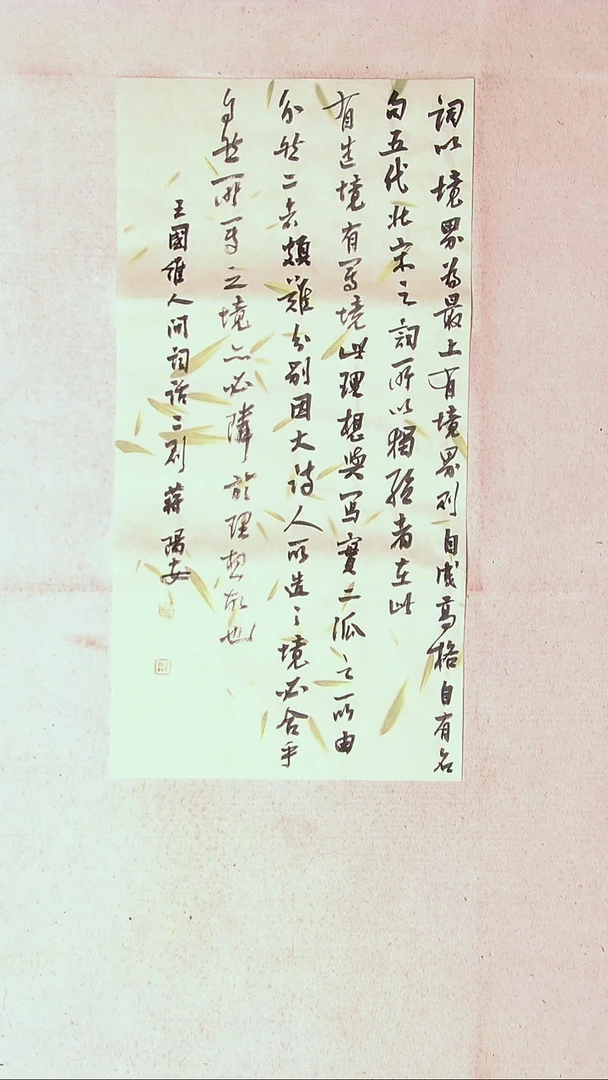 詞以境界為最上有境界則自成高格自有名
句五代北宋之詞所以獨絕者在此
有造境有寫境此理想與寫實二派之所由
分然二者頗難分別因大詩人所造之境必合乎
自然所寫之境亦必隣於理想故也
王國維人間詞話二則 蔣陽安